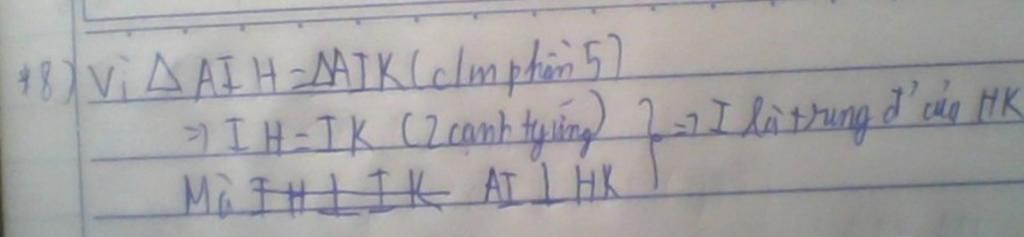 *8) Vì △ AIH = △AIK (c/m phần 5)
=> IH = IK (2 cạnh tg ứng) } => I là trung đ' của HK
Mà IH ⊥ IK AI ⊥ HK